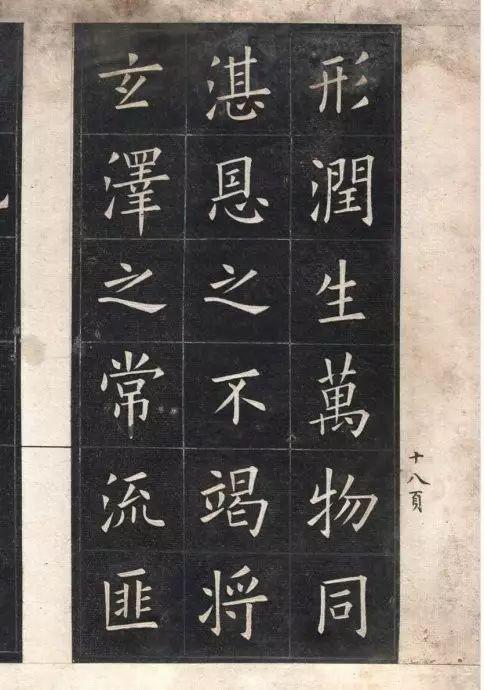 形潤生萬物同
湛恩之不竭將
玄澤之常流匪
十八頁